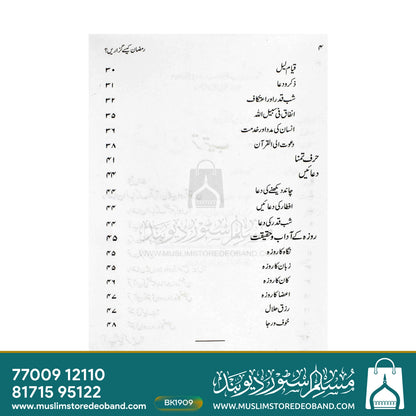 ۴ رمضان کیسے گزاریں؟
قیام لیل ۳۰
ذکر و دعا ۳۱
شب قدر اور اعتکاف ۳۲
انفاق فی سبیل اللہ ۳۵
انسان کی مدد اور خدمت ۳۶
دعوت الی القرآن ۳۸
حرف تمنا ۴۱
دعائیں ۴۴
چاند دیکھنے کی دعا ۴۴
افطار کی دعائیں ۴۴
شب قدر کی دعا ۴۴
روزہ کے آداب و حقیقت ۴۵
نگاہ کا روزہ ۴۵
زبان کا روزہ ۴۵
کان کا روزہ ۴۶
اعضا کا روزہ ۴۶
رزق حلال ۴۷
خوف و رجا ۴۸
مسلم سٹور دیوبند
WWW.MUSLIMSTOREDEOBAND.COM
77009 12110
81715 95122
BK1909
مسلم سٹور دیوبند
www.muslimstoredeoband.com
www.muslimstoredeoband.com